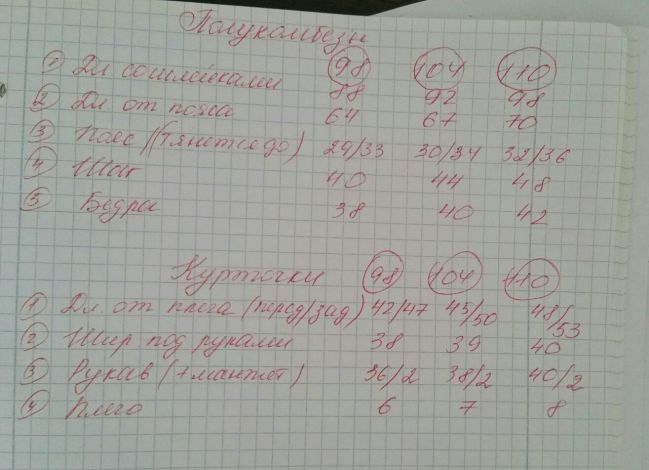 Полукомбезы
98 104 110
1 Дл со шлейками 88 92 98
2 Дл от пояса 64 67 70
3 Пояс (тянется до) 29/33 30/34 32/36
4 Шаг 40 44 48
5 Бедра 38 40 42
Курточки 98 104 110
1 Дл. от плеча (перед/зад) 42/47 45/50 48/53
2 Шир под руками 38 39 40
3 Рукав (+манжет) 36/2 38/2 40/2
4 Плечо 6 7 8